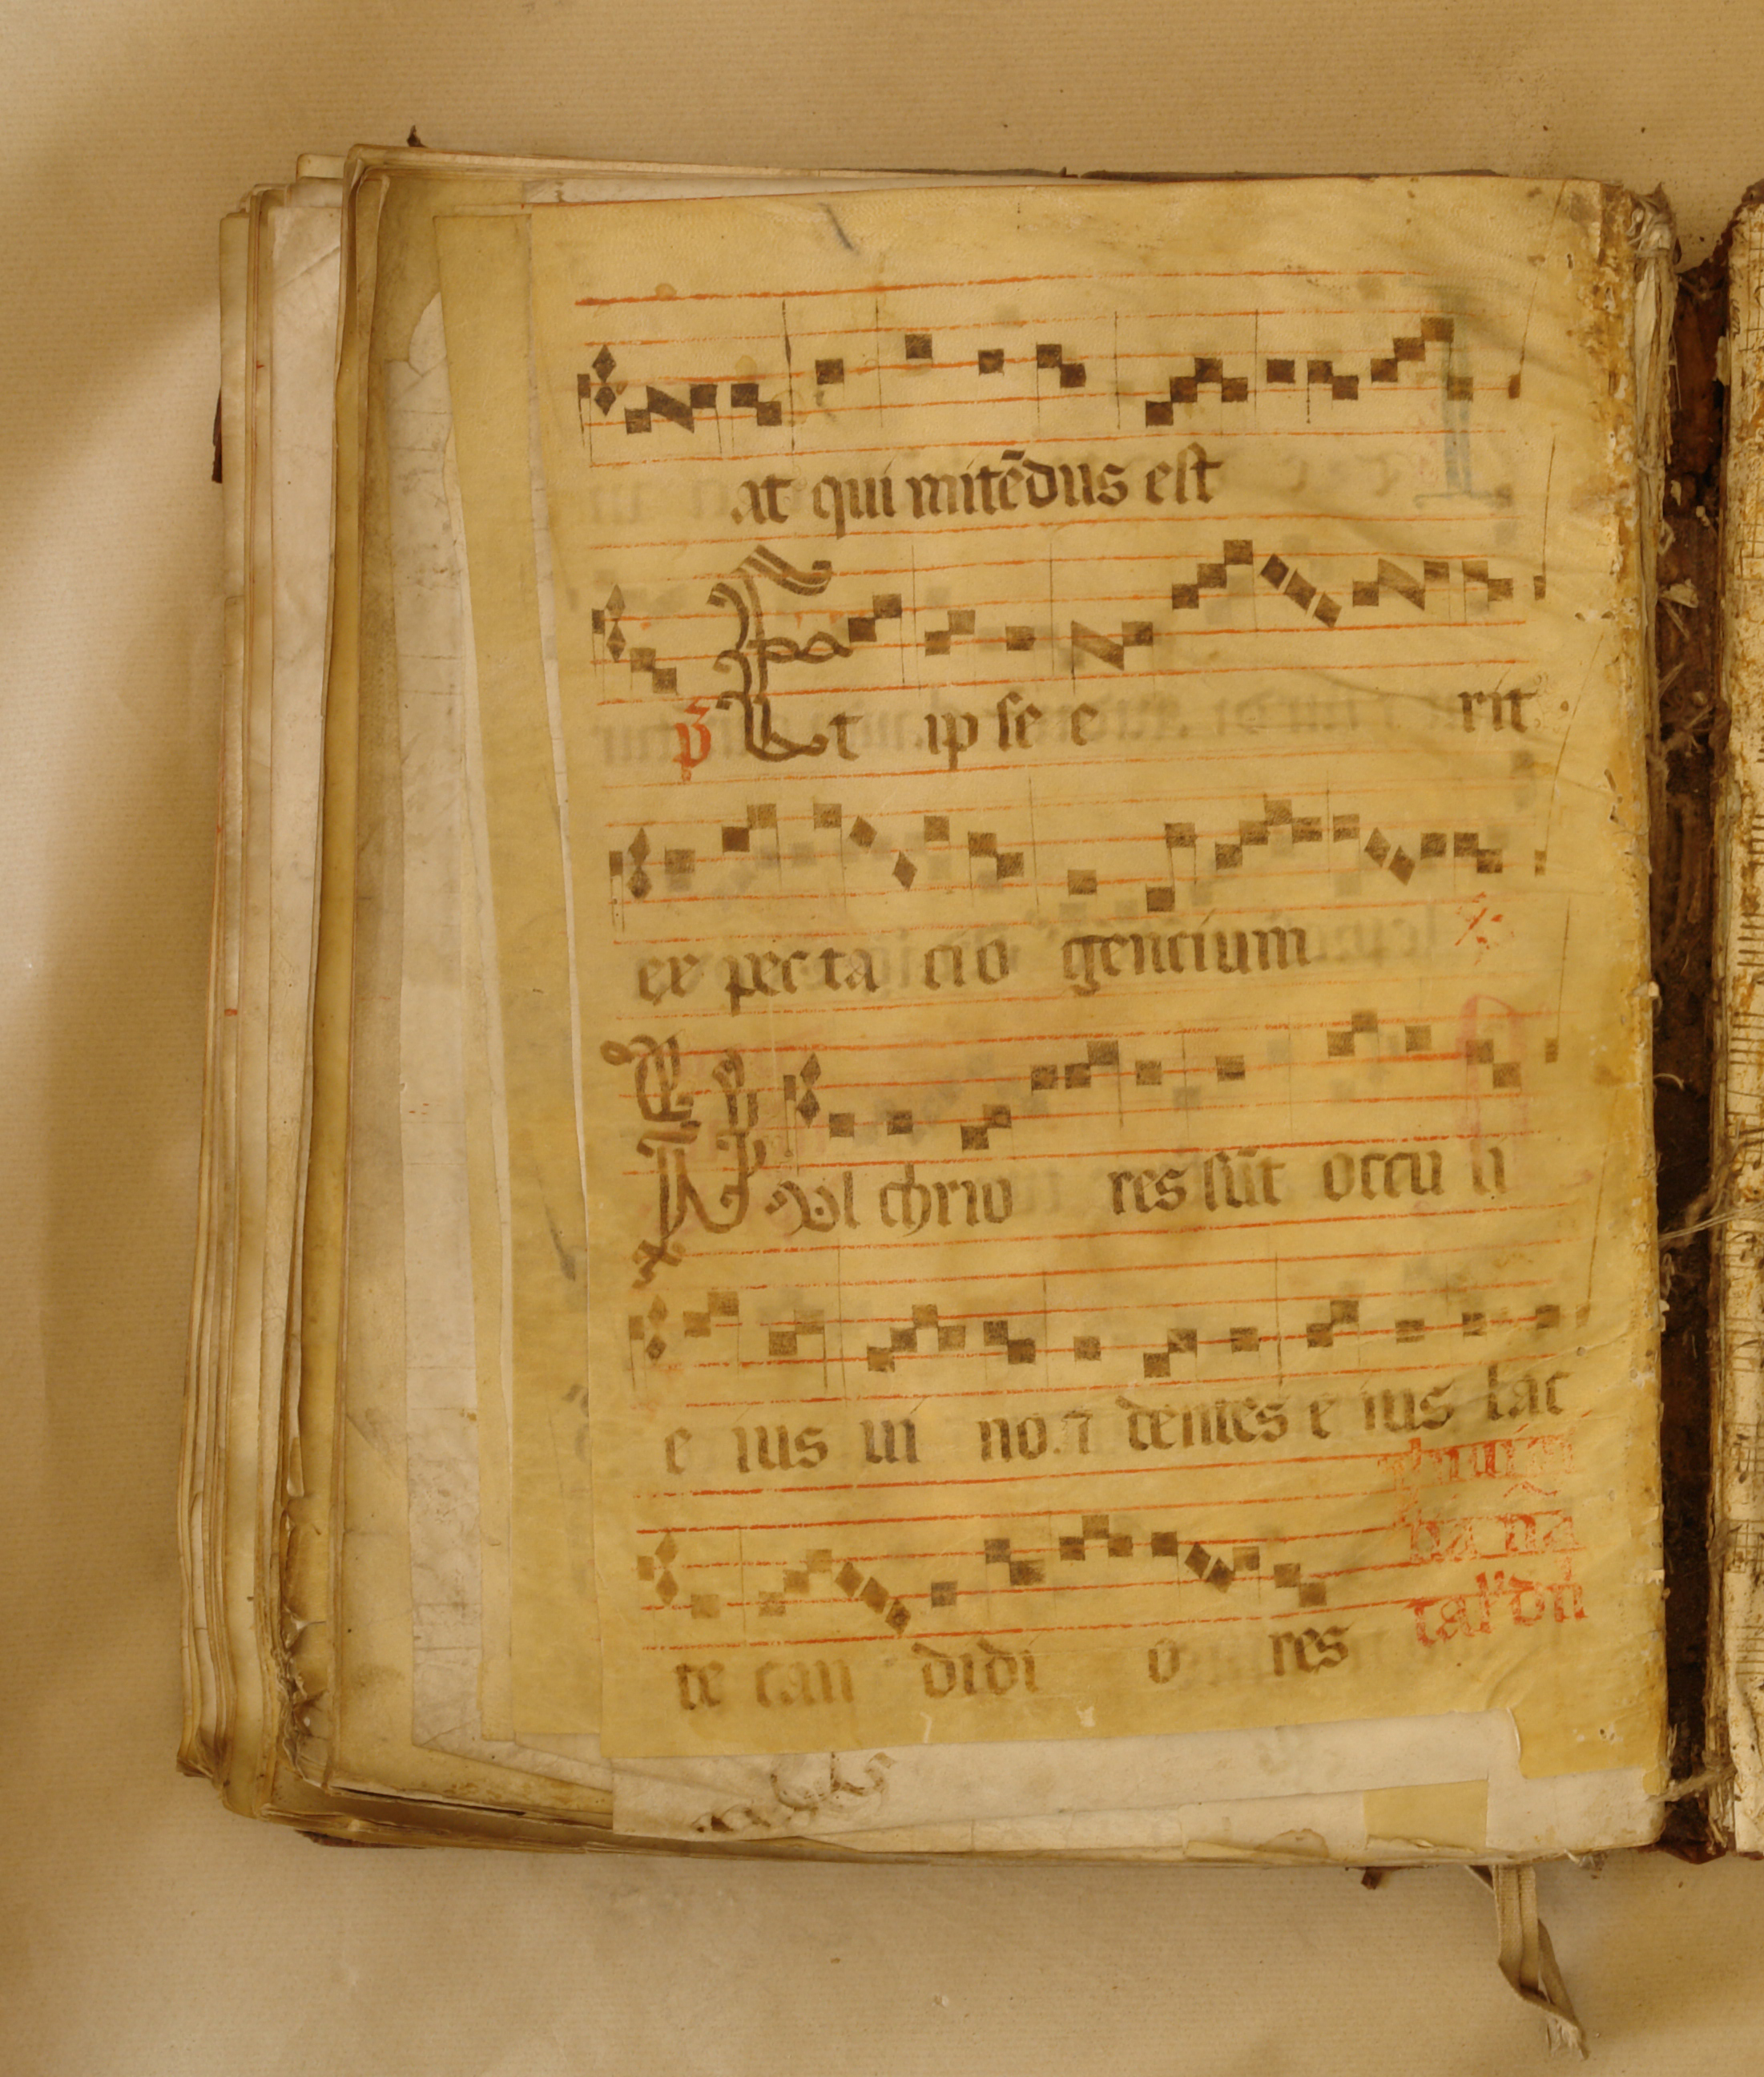 at qui mitẽdus est
p̃ Et ip se e rit
ex pec ta cio gencium
Pul chrio res sũt occu li
e ius ui no.⁊ dentes e ius lac
te can didi o res